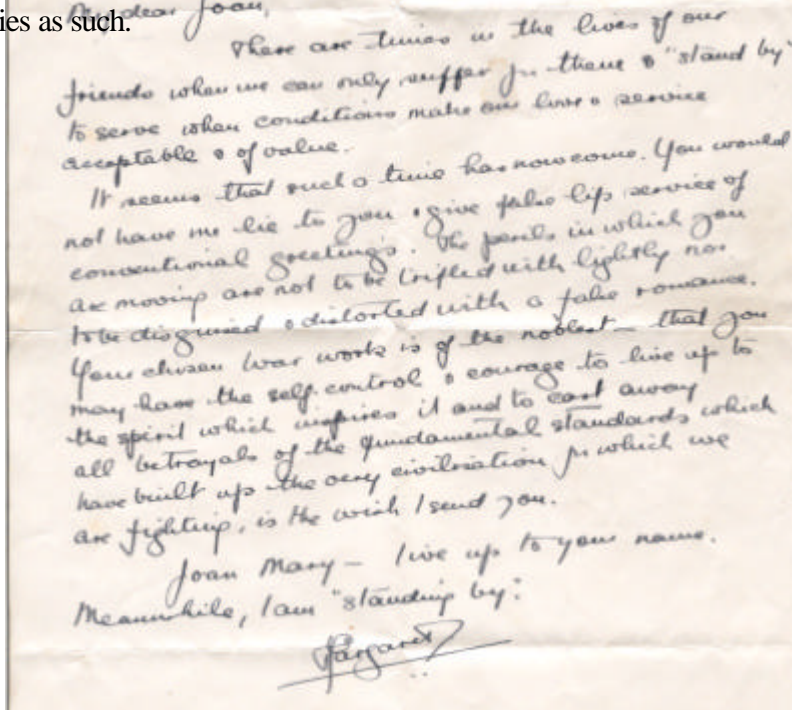 ies as such.
My dear Joan,
There are times in the lives of our
friends when we can only suffer for them & "stand by"
to serve when conditions make our love & service
acceptable & of value.
It seems that such a time has now come. You would
not have me lie to you & give false lip service of
conventional greetings. The perils in which you
are moving are not to be trifled with lightly nor
to be disguised & distorted with a false romance.
Your chosen war work is of the noblest – that you
may have the self-control & courage to live up to
the spirit which inspires it and to cast away
all betrayals of the fundamental standards which
have built up the very civilisation for which we
are fighting, is the wish I send you.
Joan Mary – live up to your name.
Meanwhile, I am "standing by".
Margaret